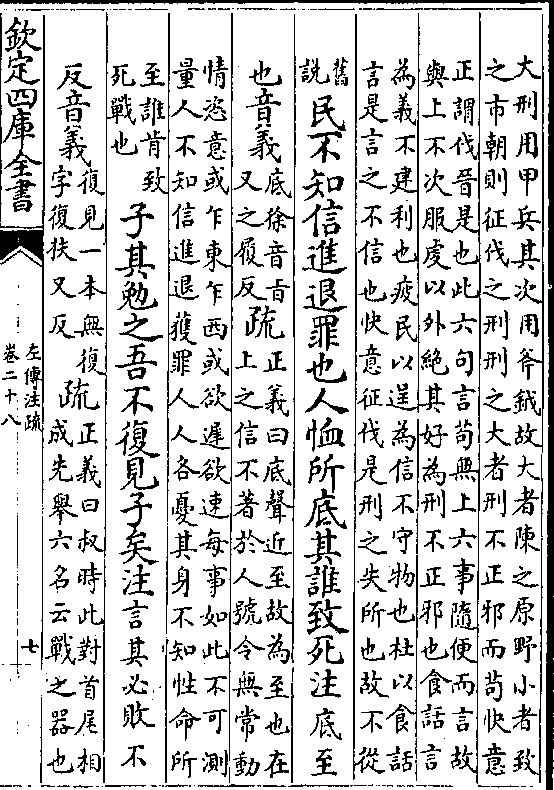 大刑用甲兵其次用斧鉞故大者陳之原野小者致
之市朝則征伐之刑刑之大者刑不正邪而苟快意
正謂伐晉是也此六句言苟無上六事隨便而言故
與上不次服虔以外絕其好為刑不正邪也食話言
為義不建利也疲民以逞為信不守物也杜以食話
言是言之不信也快意征伐是刑之失所也故不從
舊
説
民不知信進退罪也人恤所底其誰致死注底至
也音義
底徐音旨
又之履反
疏
正義曰底聲近至故為至也在
上之信不著於人號令無常動
情恣意或乍東乍西或欲遲欲速每事如此不可測
量人不知信進退獲罪人人各憂其身不知性命所
至誰肯致
死戰也
子其勉之吾不復見子矣注言其必敗不
反音義
復見一本無復
字復扶又反
疏
正義曰叔時此對首尾相
成先舉六名云戰之器也
欽定四庫全書
左傳注疏
卷二十八
七